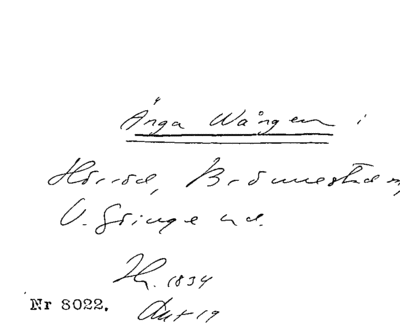 Änga Wången i
Hörröd, Brönnestad
V. Göinge hd.
Hr. 1834
Akt 19
Nr 8022.